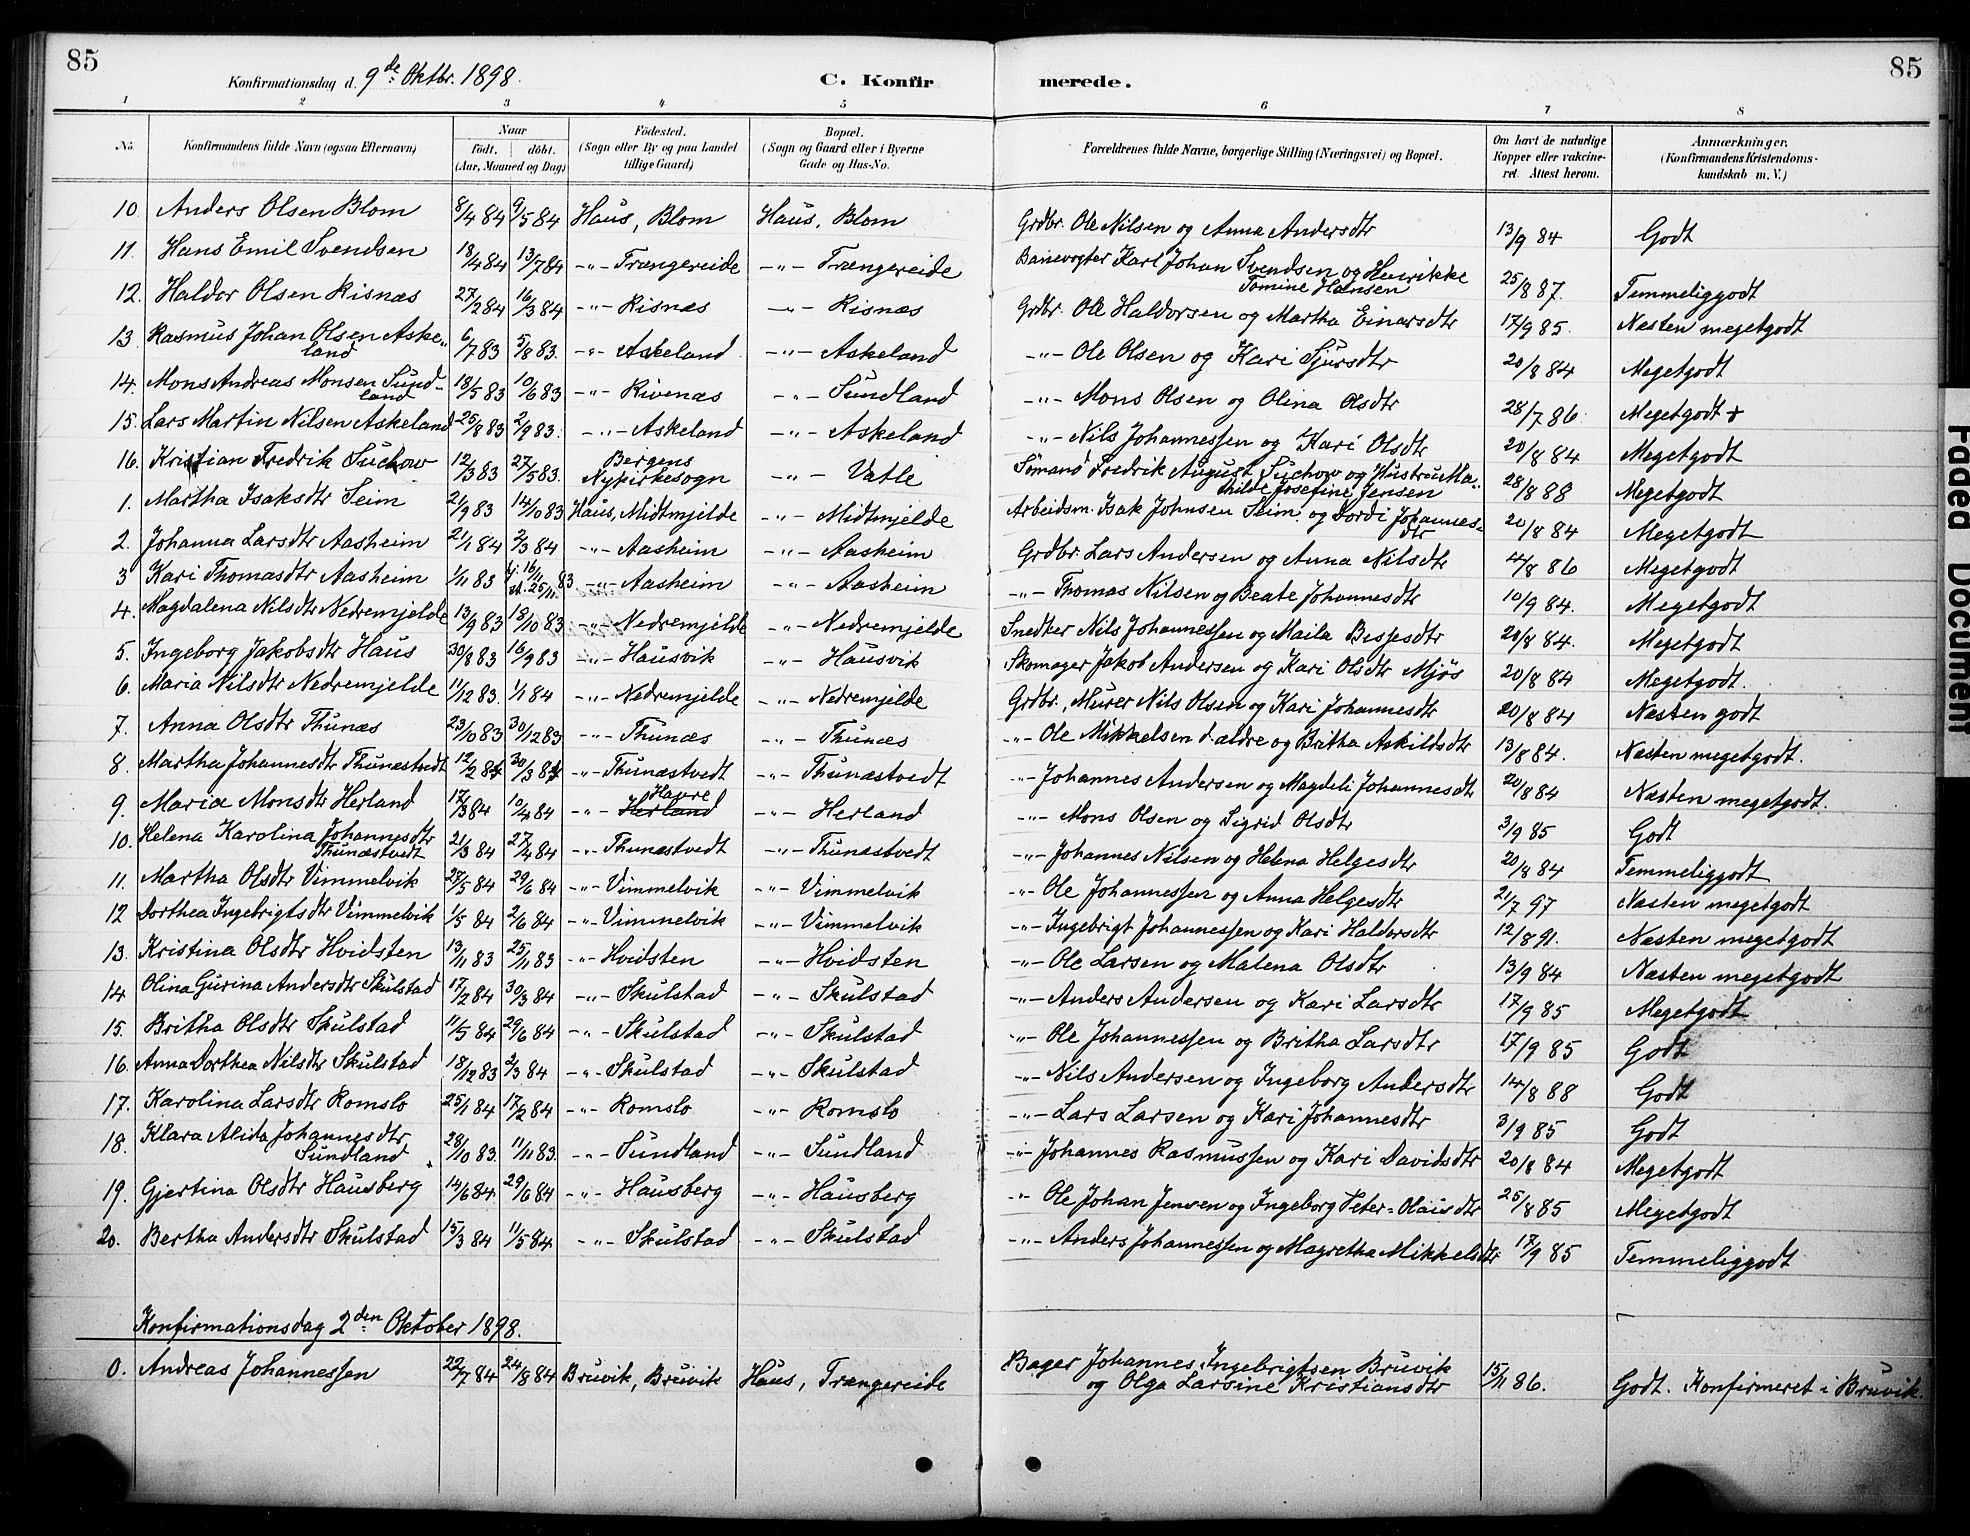 85
Konfirmationsdag d. 9de Oktbr. 1898.
C. Konfirmerede.
85
1 2 3 4 5 6 7 8
No. Konfirmandens fulde Navn (ogsaa Efternavn) Naar født. døbt. (Aar, Maaned og Dag) Fødested. (Sogn eller By og paa Landet tillige Gaard) Bopæl. (Sogn og Gaard eller i Byerne Gade og Hus-No. Forældrenes fulde Navne, borgerlige Stilling (Næringsvei) og Bopæl. Om havt de naturlige Kopper eller vakcineret. Attest herom. Anmærkninger. (Konfirmandens Kristendomskundskab m. V.)
10. Anders Olsen Blom 8/4 84 9/5 84 Haus, Blom Haus, Blom Grdbr. Ole Nilsen og Anna Andersdtr 13/9 84 Godt
11. Hans Emil Svendsen 18/4 84 13/7 84 -"- Trængereide -"- Trængereide Banevogter Karl Johan Svendsen og Henrikke Tomine Hansen 25/8 87. Temmeliggodt
12. Haldor Olsen Risnæs 27/2 84 16/3 84 -"- Risnæs -"- Risnæs Grdbr. Ole Haldorsen og Martha Einarsdtr 17/9 85. Næsten megetgodt
13. Rasmus Johan Olsen Askeland 6/7 83 5/8 83. -"- Askeland -"- Askeland -"- Ole Olsen og Kari Sjursdtr 20/8 84 Megetgodt
14. Mons Andreas Monsen Sundland 18/5 83 10/6 83 -"- Rivenæs -"- Sundland -"- Mons Olsen og Olina Olsdtr 28/7 86. Megetgodt +
15. Lars Martin Nilsen Askeland 25/8 83 2/9 83. -"- Askeland -"- Askeland -"- Nils Johannessen og Kari Olsdtr 20/8 84 Megetgodt
16. Kristian Fredrik Suchow 12/3 83 27/5 83. Bergens Nykirkesogn -"- Vatle Sømand Fredrik August Suchow og Hustru Mathilde Josefine Jensen 28/8 88 Megetgodt
1. Martha Isaksdtr Seim 21/9 83 14/10 83 Haus, Midtmjelde -"- Midtmjelde Arbeidsm. Isak Johnsen Seim og Dordi Johannesdtr 20/8 84 Megetgodt
2. Johanna Larsdtr Aasheim 21/1 84 2/3 84 -"- Aasheim -"- Aasheim Grdbr. Lars Andersen og Anna Nilsdtr 14/8 86 Megetgodt
3 Kari Thomasdtr Aasheim 1/11 83 hj. 16/11 st. 25/11 83 -"- Aasheim -"- Aasheim -"- Thomas Nilsen og Beate Johannesdtr 10/9 84. Megetgodt
4. Magdalena Nilsdtr Nedremjelde 13/9 83 18/10 83 -"- Nedremjelde -"- Nedremjelde Snedker Nils Johannessen og Maila Bessesdtr 20/8 84. Megetgodt
5. Ingeborg Jakobsdtr Haus 30/8 83 16/9 83 -"- Hausvik -"- Hausvik Skomager Jakob Andersen og Kari Olsdtr Mjøs 20/8 84 Megetgodt.
6. Maria Nilsdtr Nedremjelde 11/12 83. 1/1 84 -"- Nedremjelde -"- Nedremjelde Grdbr., Murer Nils Olsen og Kari Johannesdtr 20/8 84 Næsten godt
7. Anna Olsdtr Thunæs 23/10 83 30/12 83 -"- Thunæs -"- Thunæs -"- Ole Mikkelsen d. ældre og Britha Askildsdtr 13/8 84. Næsten megetgodt.
8. Martha Johannesdtr Thunæstvedt 12/2 84 30/3 84 -"- Thunæstvedt -"- Thunæstvedt -"- Johannes Andersen og Magdeli Johannesdtr 20/8 84 Næsten megetgodt.
9. Maria Monsdtr Herland 17/3 84 10/4 84 -"- Havre Herland -"- Herland -"- Mons Olsen og Sigrid Olsdtr 3/9 85 Godt
10. Helena Karolina Johannesdtr Thunæstvedt 21/3 84 27/4 84 -"- Thunæstvedt -"- Thunæstvedt -"- Johannes Nilsen og Helena Helgesdtr 20/8 84 Temmeliggodt
11. Martha Olsdtr Vimmelvik 27/5 84 29/6 84 -"- Vimmelvik -"- Vimmelvik -"- Ole Johannessen og Anna Helgesdtr 21/7 97 Næsten megetgodt
12 Dorthea Ingebrigtsdtr Vimmelvik 1/5 84 2/6 84 -"- Vimmelvik -"- Vimmelvik -"- Ingebrigt Johannessen og Kari Haldorsdtr 12/8 91. Næsten megetgodt
13. Kristina Olsdtr Hvidsten 13/11 83 25/11 83 -"- Hvidsten -"- Hvidsten -"- Ole Larsen og Malena Olsdtr 13/9 84 Næsten megetgodt
14 Olina Gurina Andersdtr Skulstad 17/2 84 30/3 84 -"- Skulstad -"- Skulstad -"- Anders Andersen og Kari Larsdtr 17/9 85 Megetgodt
15. Britha Olsdtr Skulstad 11/5 84 29/6 84 -"- Skulstad -"- Skulstad -"- Ole Johannessen og Britha Larsdtr 17/9 85 Godt
16. Anna Dorthea Nilsdtr Skulstad 18/12 83 2/3 84 -"- Skulstad -"- Skulstad -"- Nils Andersen og Ingeborg Andersdtr 14/8 88 Godt
17. Karolina Larsdtr Romslo 25/1 84 17/2 84 -"- Romslo -"- Romslo -"- Lars Larsen og Kari Johannesdtr 3/9 85 Godt
18. Klara Alida Johannesdtr Sundland 28/10 83. 11/11 83. -"- Sundland -"- Sundland -"- Johannes Rasmussen og Kari Davidsdtr 20/8 84 Megetgodt
19. Gjertina Olsdtr Hausberg 14/6 84. 29/6 84 -"- Hausberg -"- Hausberg -"- Ole Johan Jensen og Ingeborg Peter-Olaisdtr 25/8 85 Megetgodt
20. Bertha Andersdtr Skulstad 15/3 84 11/5 84 -"- Skulstad -"- Skulstad -"- Anders Johannessen og Magretha Mikkelsdtr 17/9 85 Temmeliggodt
Konfirmationsdag 2den Oktober 1898.
0. Andreas Johannessen 22/7 84 24/8 84 Bruvik, Bruvik Haus, Trængereide Bager Johannes Ingebrigtsen Bruvik og Olga Larsine Kristiansdtr 15/11 86. Godt. Konfirmeret i Bruvik.
Faded Document